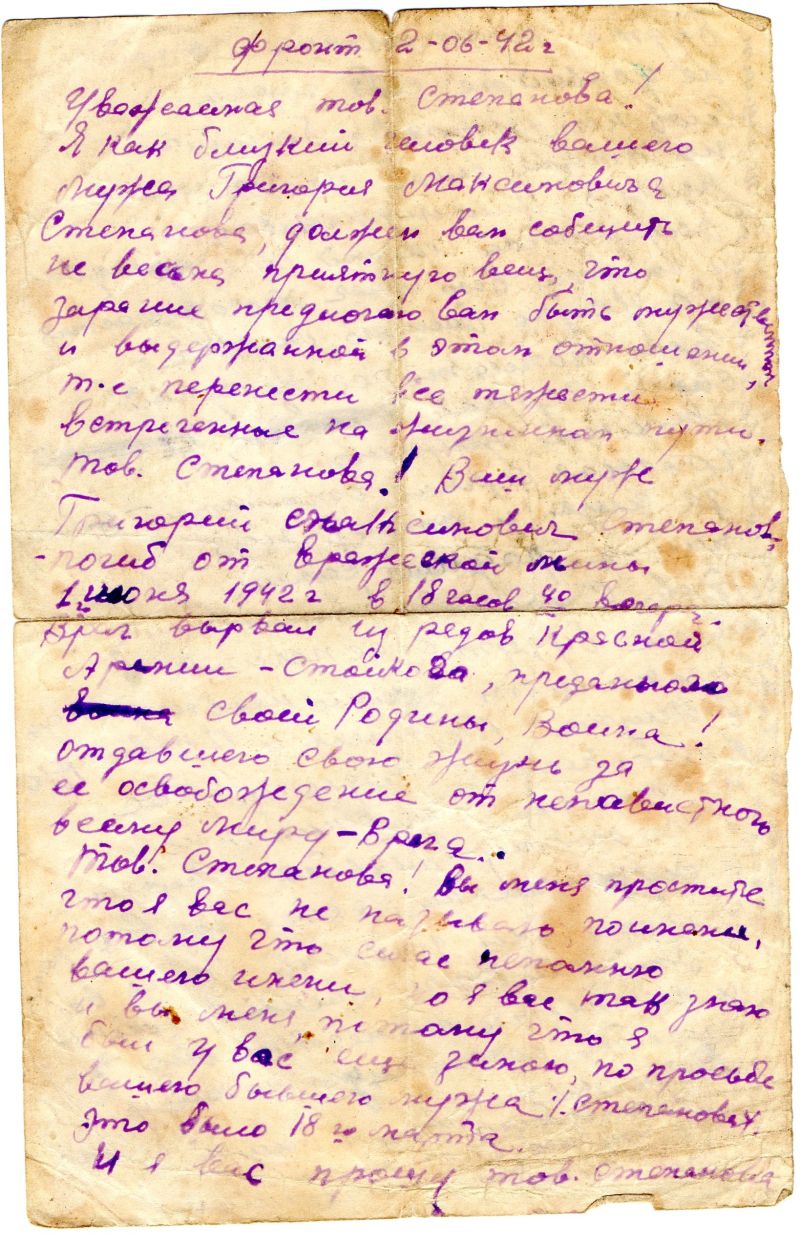 Фронт 2-06-42 г
Уважаемая тов. Степанова!
Я как близкий человек вашего
мужа Григория Максимовича
Степанова, должен вам собщить
не весьма приятную вещ, что
зарание предлогаю вам быть мужественной
и выдержанной в этом отношении,
т-е перенести все тяжести
встреченные на жизненном пути.
Тов. Степанова! Ваш муж
Григорий Максимович Степанов-
-погиб от вражеской мины
1 июня 1942 г в 18 часов 40 вечера.
Враг вырвал из рядов Красной
Армии - Стойкова, преданного
своей Родины, Воина!
отдавшего свою жизнь за
ее освобождение от ненавистного
всему миру-Врага.
Тов. Степанова! Вы меня простите
что я вас не называю поимени,
потому что сичас непомню
вашего имени, но я вас так знаю
и вы меня, потому что я
был у вас еще зимою, по просьбе
вашего бывшего мужа т. Степанова.
Это было 18 го марта.
И я вас прошу тов. Степанова